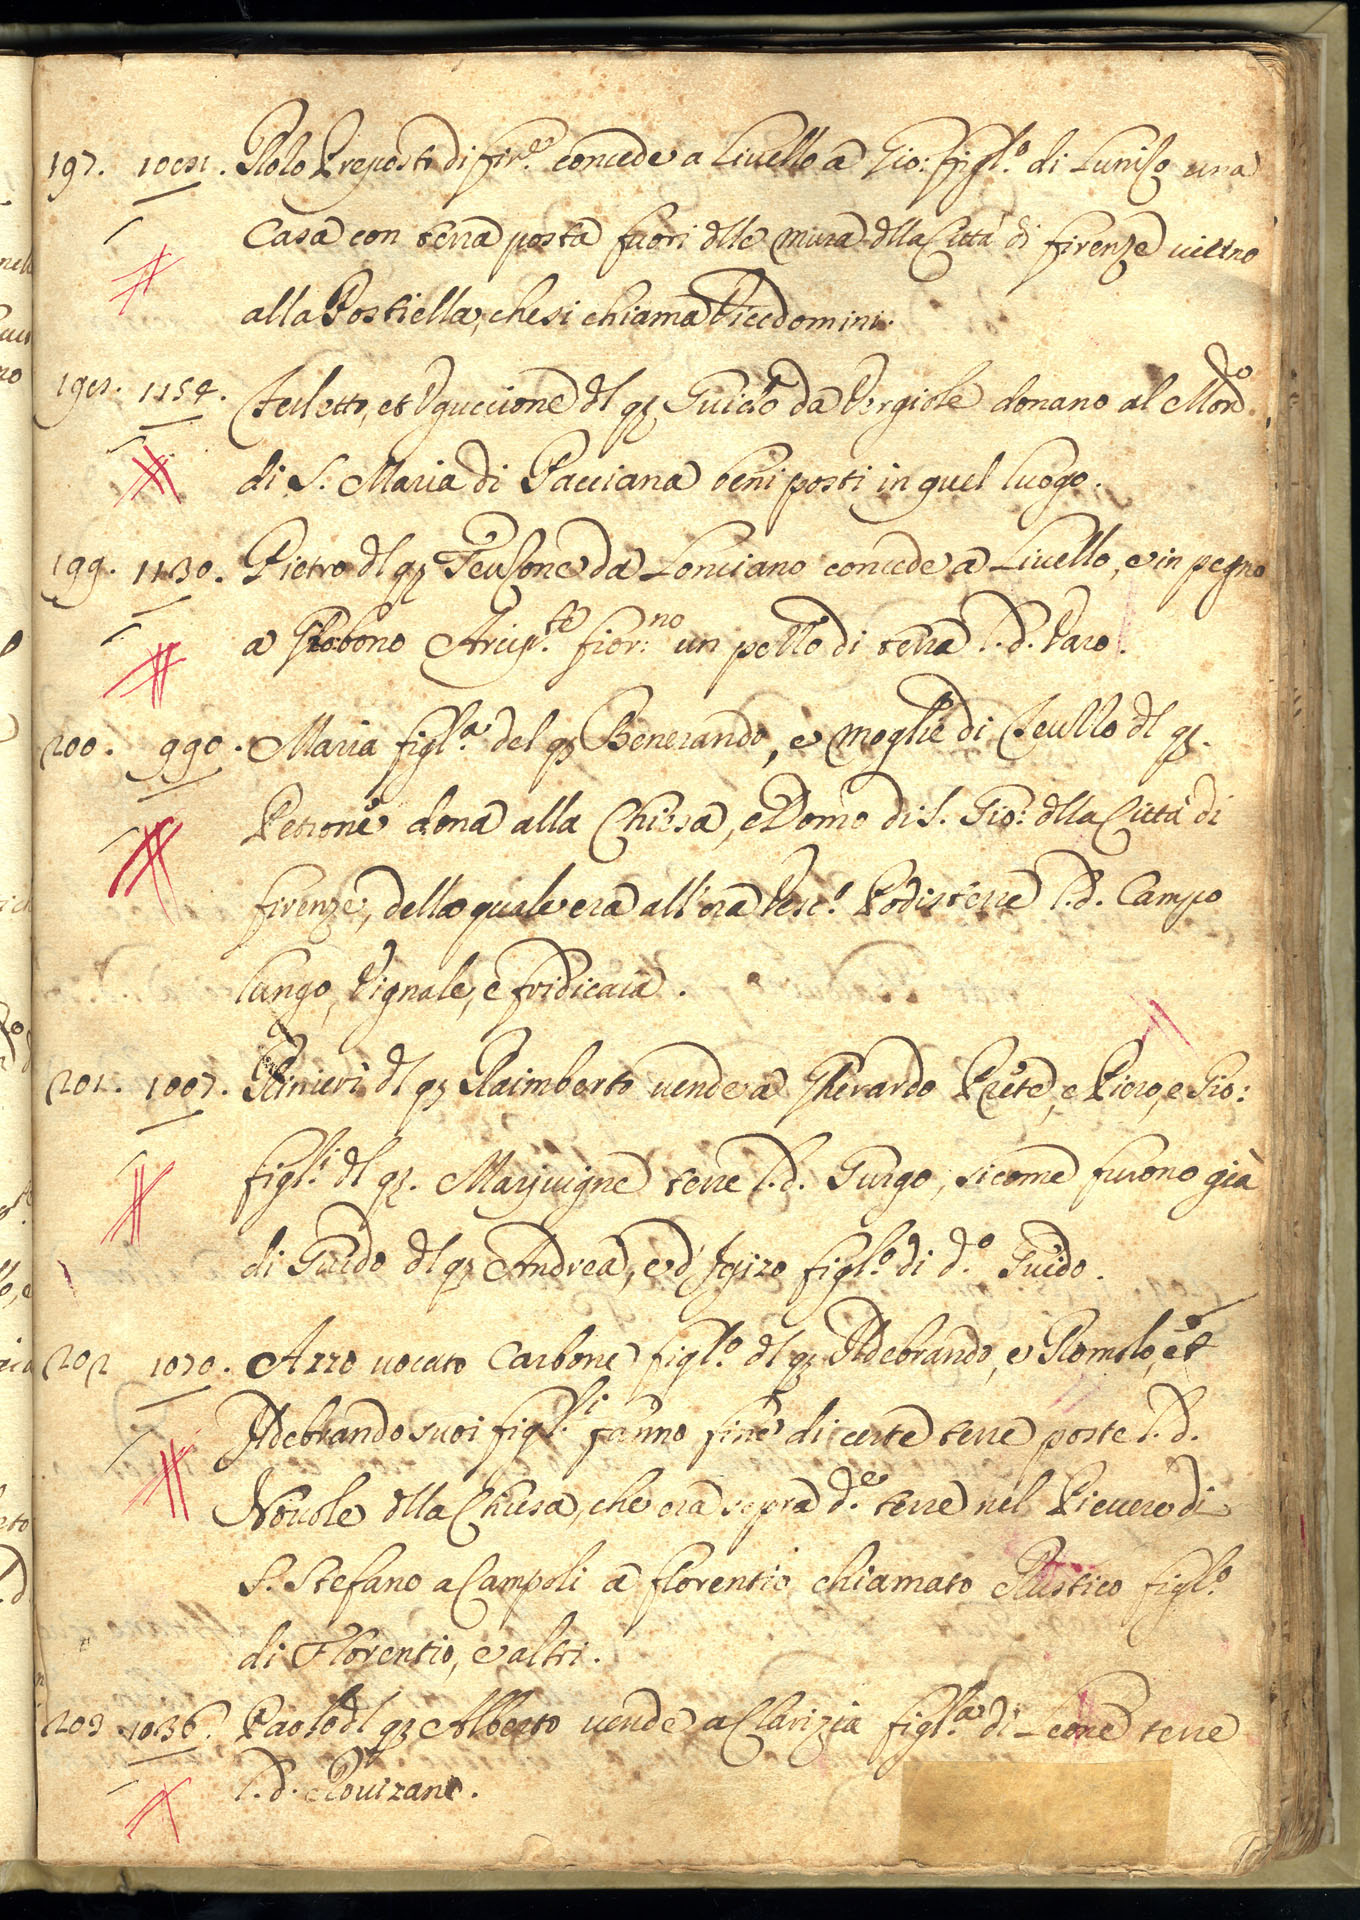 197. 1081. Rolo Preposto di Fir.e concede a Livello a Gio: figl.o di Luniso una
Casa con terra posta fuori dlle mura dlla Città di Firenze vicino
alla Postiella, che si chiama Vicedomini.
198. 1154. Uguccione dl q3 Guido da Vergiole donano al Mon.o
di S. Maria di Pacciana beni posti in quel luogo.
199. 1130. Pietro dl q3 Teusone da Lonciano concede a Livello, e in pegno
a Arcip.te Fior:no un pezzo di terra l. d. Varo.
200. 990. Maria figl.a del q3 Benerando, e moglie di Teuzzo dl q3.
Petrone dona alla Chiesa, e Domo di S. Gio: dlla Città di
Firenze, della quale era all'ora Vesc.o Podio terre l. d. Campo
lungo, Vignale, e Fridicaia.
201. 1007. Rinieri dl q3 Raimberto vende a Gherardo Prete, e Piero, e Gio:
figl.i dl q3. terre l. d. Gurgo, sicome furono già
di Guido dl q3 Andrea, e d' figl.o di d.o Guido.
202 1070. Azzo vocato Carbone figl.o dl q3 Ildebrando, e Romolo, et
Ildebrando suoi figl.i fanno fine di certe terre poste l. d.
Novole dlla Chiesa, che era sopra d.e terre nel Piviere di
S. Stefano a Campoli a Florentio chiamato Rustico figl.o
di Florentio, e altri.
203 1036. Paolo dl q3 Alberto vende a Clarizia figl.a di Leone terre
l. d. Rovizano.